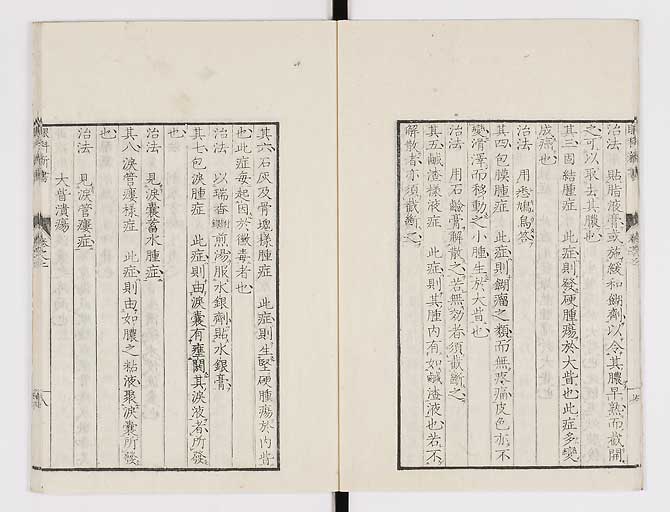 治法 貼脂液膏或施緩和餬劑以令其膿早熟而截開
之可以取去其膿也
其三固結腫症 此症則發硬腫瘍於大眥也此症多變
成癌也
治法 用悉鳩鳥答
其四包膜腫症 此症則餬瘤之類而無疼痛皮色亦不
變滑澤而移動之小腫生於大眥也
治法 用石鹼膏解散之若無効者須截斷之
其五鹹渣樣液症 此症則其腫內有如鹹渣液也若不
解散者亦須截斷之
其六石灰及骨塊樣腫症 此症則生堅硬腫瘍於內眥
也此症每起因於黴毒者也
治法 以瑞香煎湯服水銀劑貼水銀膏
其七包淚腫症 此症則由淚囊有壅閉其淚液者所發
也
治法 見淚囊蓄水腫症
其八淚管瘻樣症 此症則由如膿之粘液聚淚囊所發
也
治法 見淚管瘻症
大眥潰瘍
眼科新書 卷之二